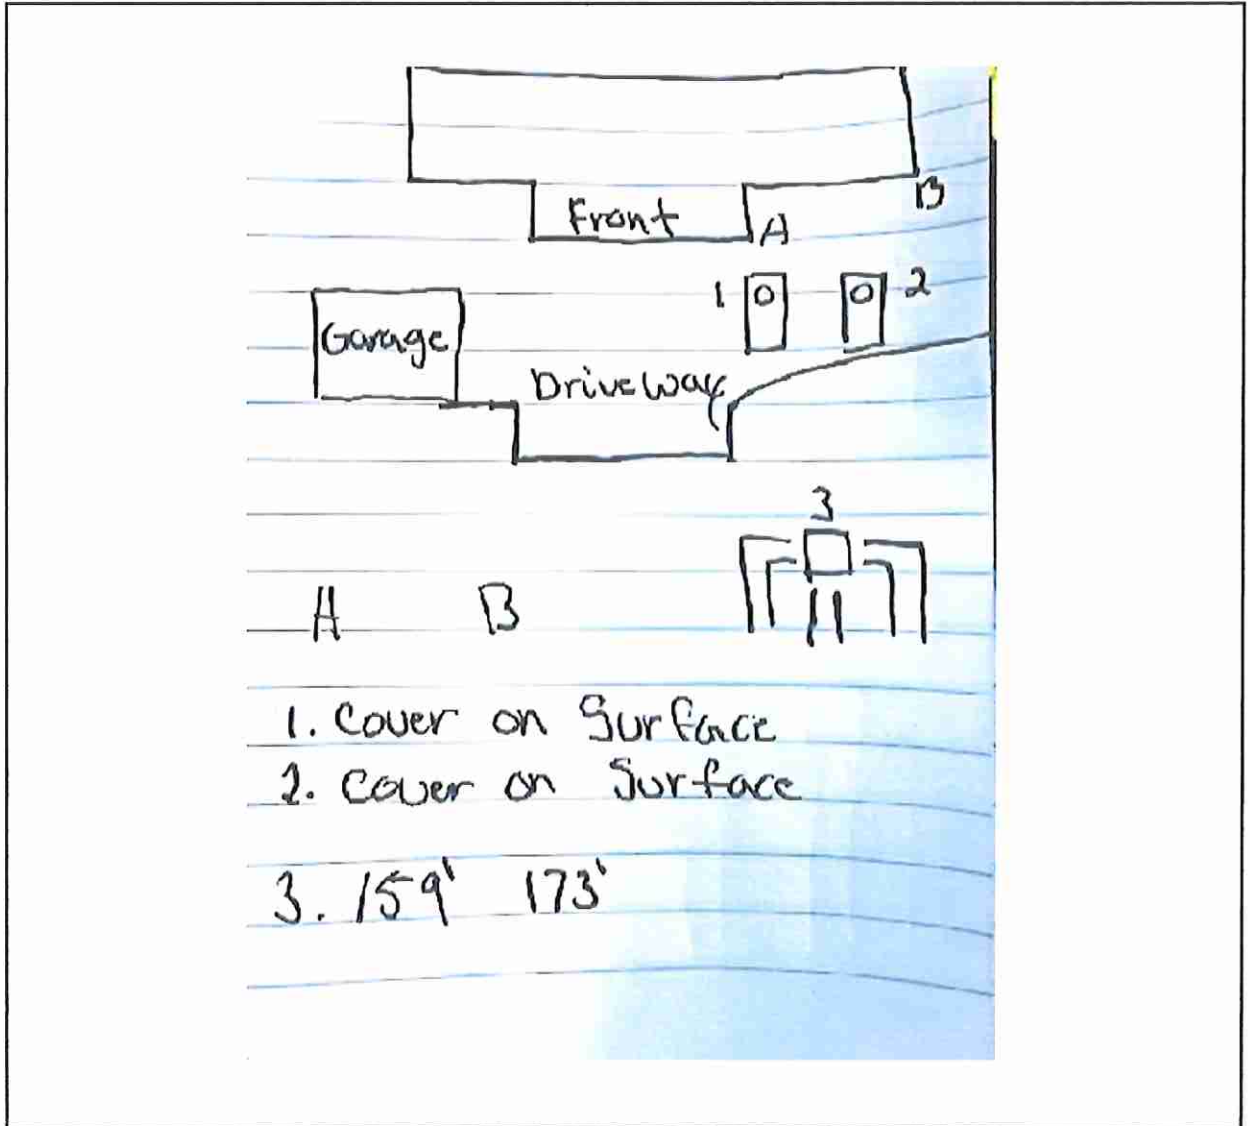 Front
A
B
1
2
Garage
Driveway
3
A B
1. Cover on Surface
2. Cover on Surface
3. 159' 173'